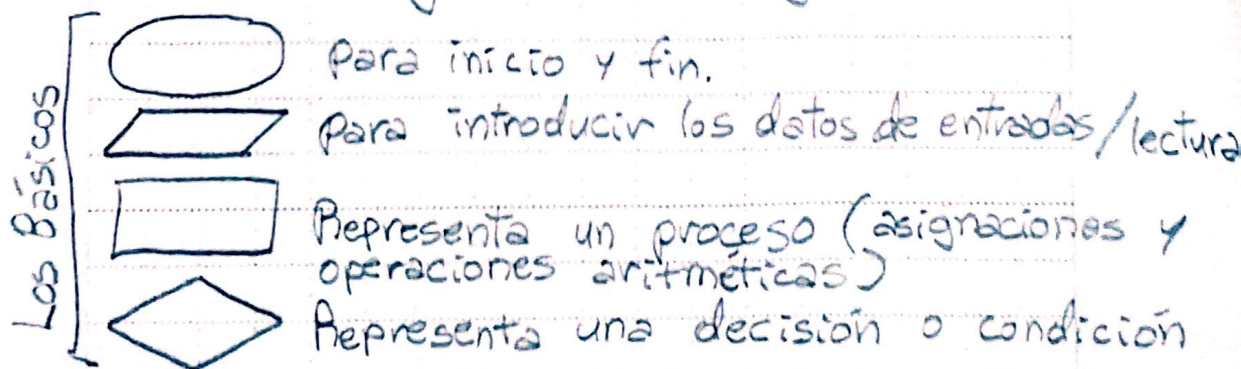 Los Básicos
Para inicio y fin.
Para introducir los datos de entradas/lectura
Representa un proceso (asignaciones y
operaciones aritméticas)
Representa una decisión o condición